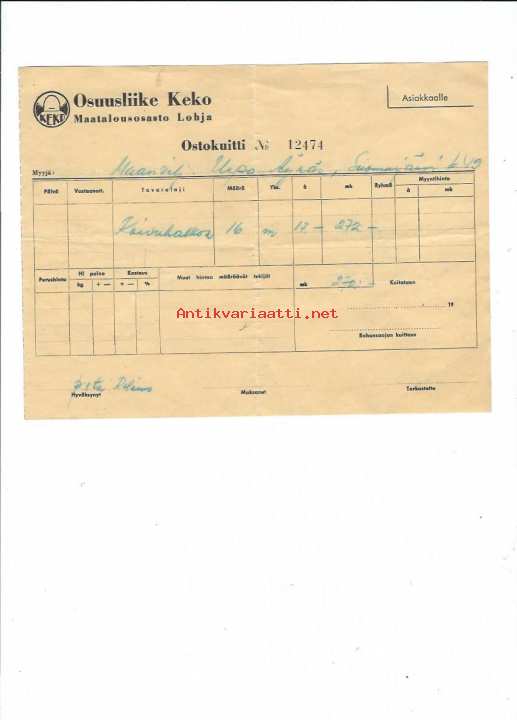 KEKO
Osuusliike Keko
Maatalousosasto Lohja
Asiakkaalle
Ostokuitti № 12474
Myyjä: Maanvilj. Urpo
Päivä Vastaanott. Tavaralaji Määrä Yks. à mk Ryhmä Myyntihinta
à mk
Koivuhalkoa 16 m 17- 272-
Perushinta Hl paino Kosteus Muut hintaa määräävät tekijät mk Kuitataan
kg + — + — %
19
Antikvariaatti.net
Rahansaajan kuittaus
Hyväksynyt Maksanut Tarkastettu